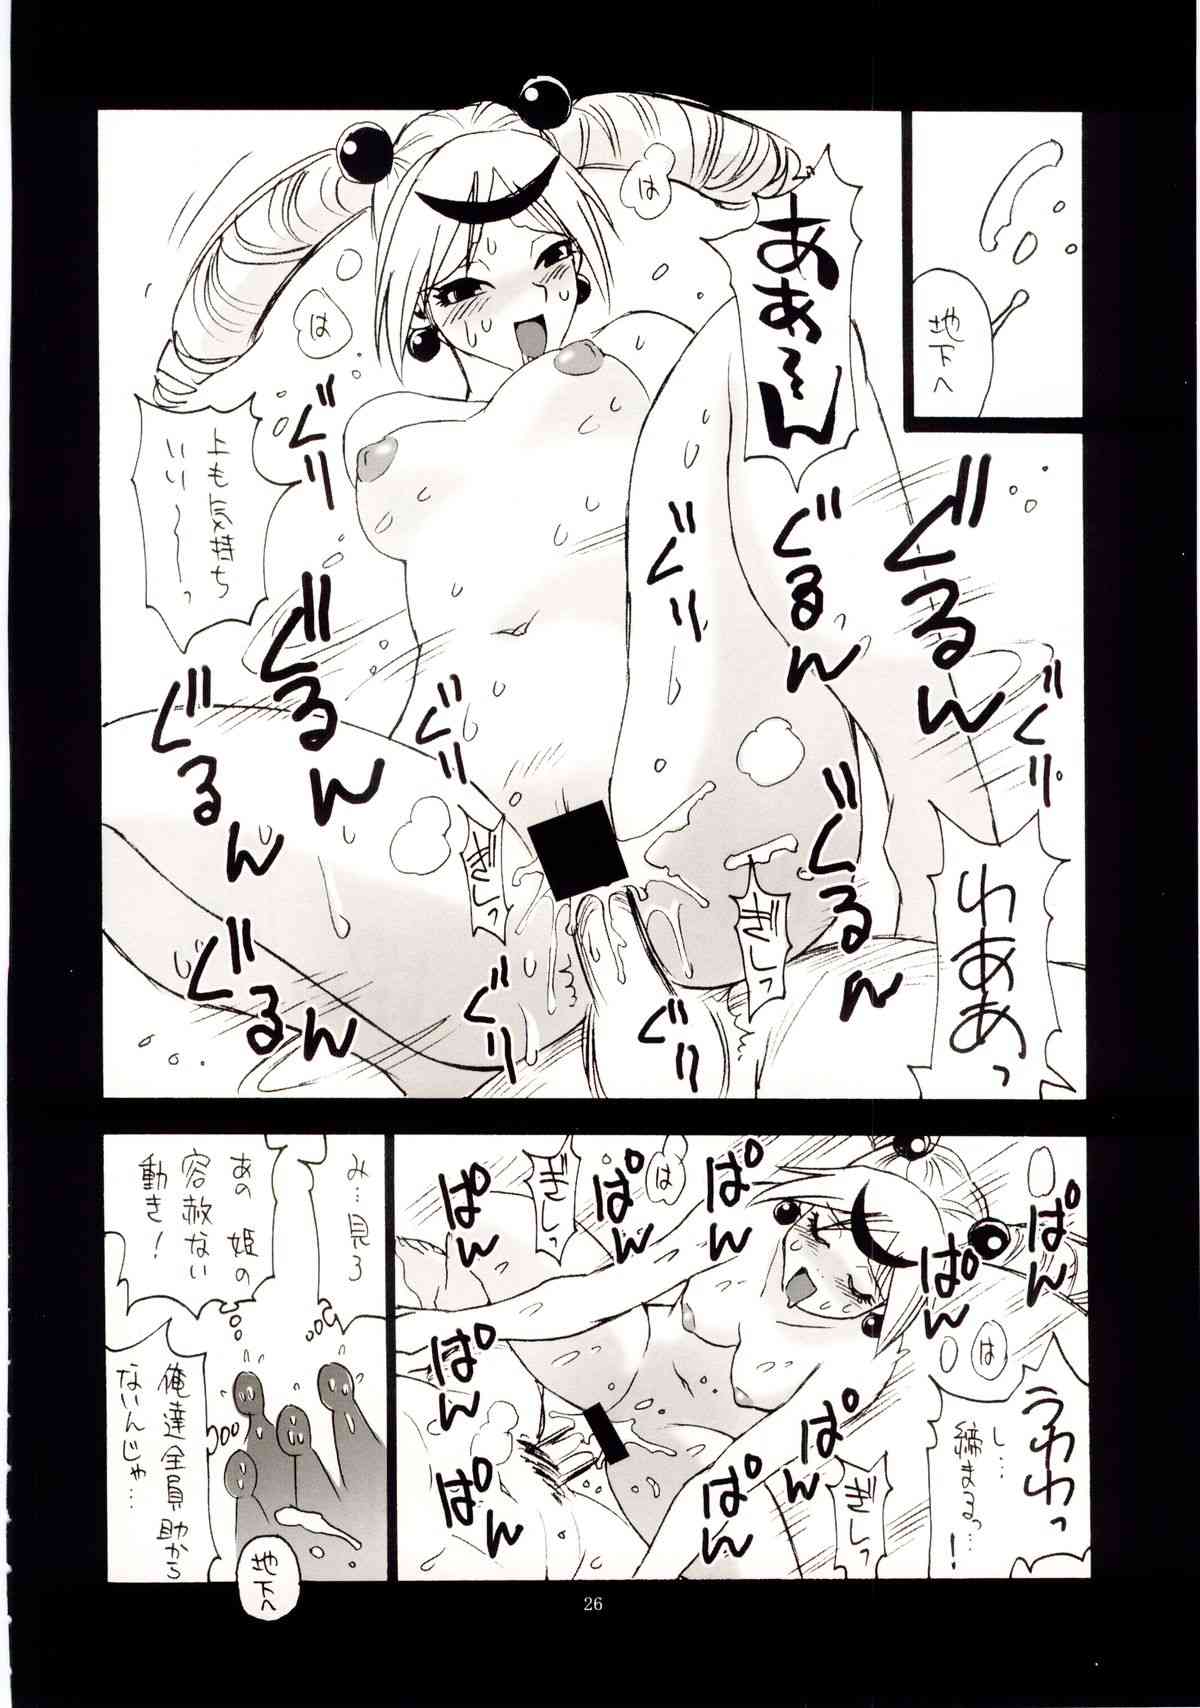 地下へ
あぁ〜ん
は
は
上も気持ち
いい〜〜っ
ぐり
ぐり
ぐるん
ぐるんっ
ぐるん
ぐるん
ぐり
ぐるん
ぐるん
ぎしっ
ぎしっ
ぐり
ぐり
わああっ
ぱん
ぱん
は
うわわっ
し…
締まるっ…!
ぱん
ぱん
ぱん
は
ぎしっ
ぱん
ぱん
ぱん
ぎしっ
み…見ろ
あの姫の
容赦ない
動き!
俺達全員助から
ないんじゃ…
地下へ
26